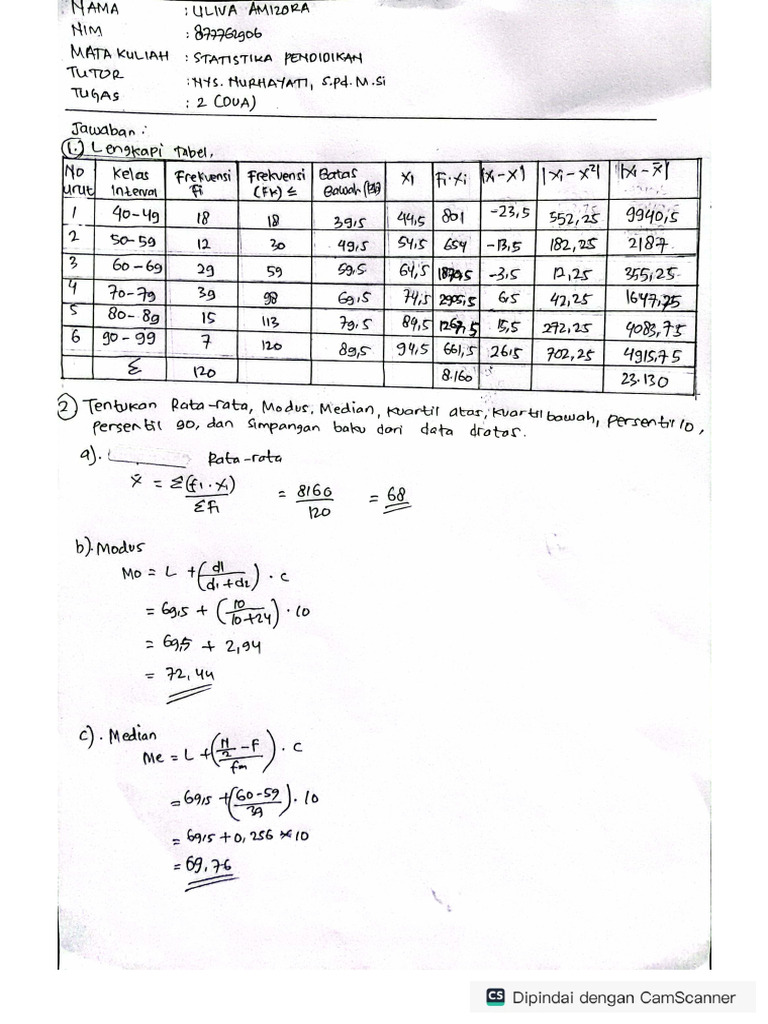 NAMA : ULIVA AMIZORA
NIM : 877762906
MATA KULIAH : STATISTIKA PENDIDIKAN
TUTOR : NYS. NURHAYATI, S.Pd. M.Si
TUGAS : 2 (DUA)
Jawaban :
1. Lengkapi Tabel,
No urut Kelas Interval Frekuensi Fi Frekuensi (Fk) ≤ Batas Bawah (Bb) Xi Fi.Xi |Xi - X| |Xi - X²| |Xi - X̄|
1 40-49 18 18 39,5 44,5 801 -23,5 552,25 9940,5
2 50-59 12 30 49,5 54,5 654 -13,5 182,25 2187
3 60-69 29 59 59,5 64,5 1870,5 -3,5 12,25 355,25
4 70-79 39 98 69,5 74,5 2905,5 6,5 42,25 1647,75
5 80-89 15 113 79,5 84,5 1267,5 15,5 272,25 4083,75
6 90-99 7 120 89,5 94,5 661,5 26,5 702,25 4915,75
Σ 120 8.160 23.130
2 Tentukan Rata-rata, Modus, Median, kuartil atas, kuartil bawah, persentil 10,
persentil 90, dan Simpangan baku dari data diatas.
a). Rata-rata
x̄ = Σ(fi.xi) / ΣFi = 8160 / 120 = 68
b). Modus
Mo = L + (d1 / d1+d2) . c
= 69,5 + (10 / 10+24) . 10
= 69,5 + 2,94
= 72,44
c). Median
Me = L + (N/2 - F / fm) . c
= 69,5 + (60-59 / 39) . 10
= 69,5 + 0,256 × 10
= 69,76
CS Dipindai dengan CamScanner